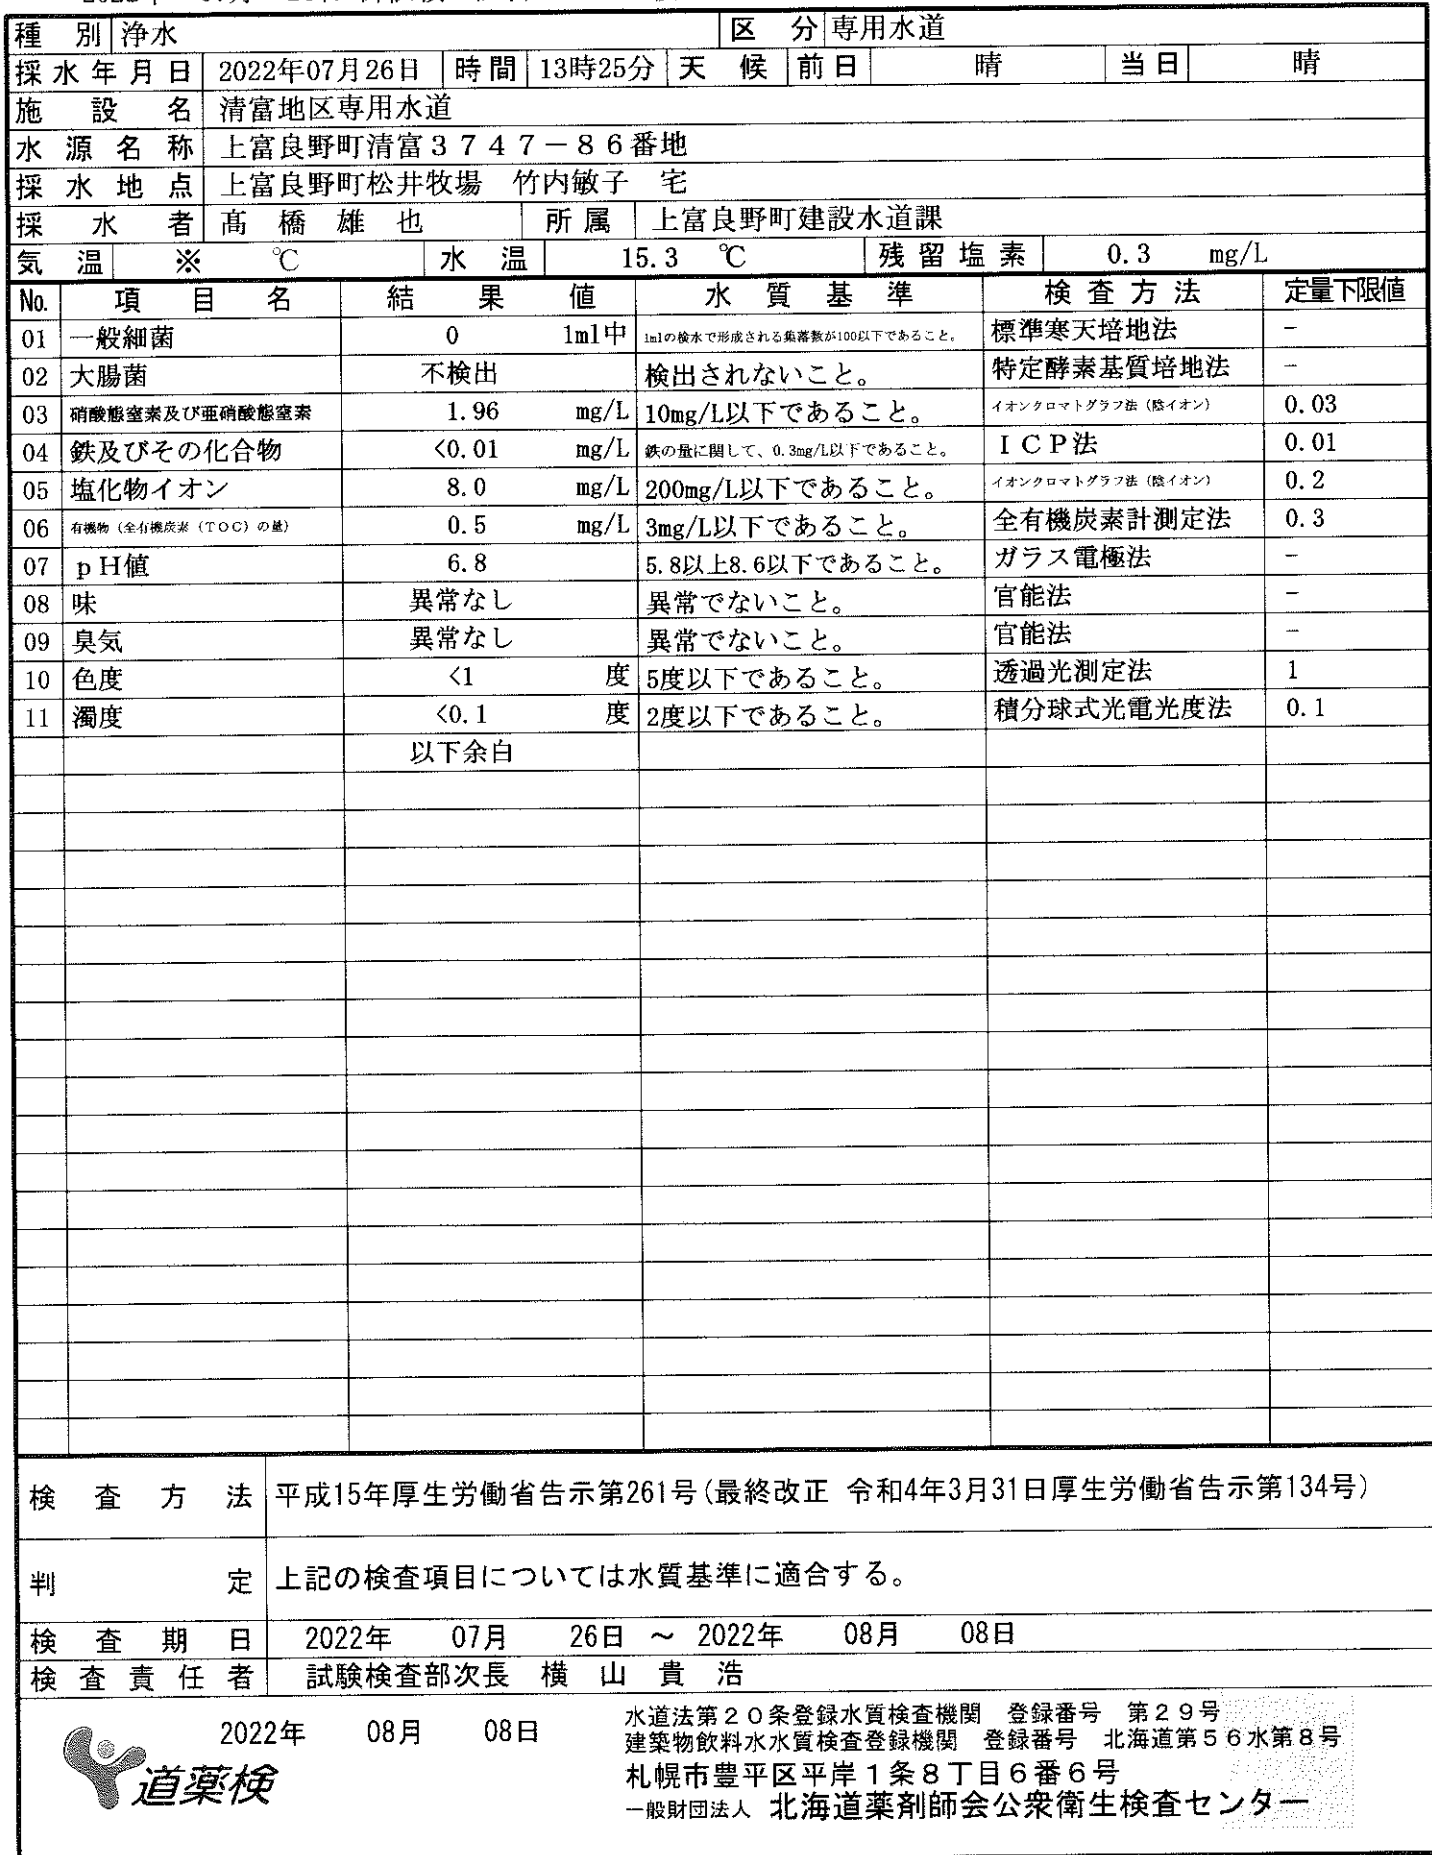 種別 浄水 区分 専用水道
採水年月日 2022年07月26日 時間 13時25分 天候 前日 晴 当日 晴
施設名 清富地区専用水道
水源名称 上富良野町清富3747-86番地
採水地点 上富良野町松井牧場 竹内敏子 宅
採水者 髙橋雄也 所属 上富良野町建設水道課
気温 ※ ℃ 水温 15.3 ℃ 残留塩素 0.3 mg/L
No. 項目名 結果値 水質基準 検査方法 定量下限値
01 一般細菌 0 1ml中 1mlの検水で形成される集落数が100以下であること。 標準寒天培地法 -
02 大腸菌 不検出 検出されないこと。 特定酵素基質培地法 -
03 硝酸態窒素及び亜硝酸態窒素 1.96 mg/L 10mg/L以下であること。 イオンクロマトグラフ法(陰イオン) 0.03
04 鉄及びその化合物 <0.01 mg/L 鉄の量に関して、0.3mg/L以下であること。 ICP法 0.01
05 塩化物イオン 8.0 mg/L 200mg/L以下であること。 イオンクロマトグラフ法(陰イオン) 0.2
06 有機物(全有機炭素(TOC)の量) 0.5 mg/L 3mg/L以下であること。 全有機炭素計測定法 0.3
07 pH値 6.8 5.8以上8.6以下であること。 ガラス電極法 -
08 味 異常なし 異常でないこと。 官能法 -
09 臭気 異常なし 異常でないこと。 官能法 -
10 色度 <1 度 5度以下であること。 透過光測定法 1
11 濁度 <0.1 度 2度以下であること。 積分球式光電光度法 0.1
以下余白
検査方法 平成15年厚生労働省告示第261号(最終改正 令和4年3月31日厚生労働省告示第134号)
判定 上記の検査項目については水質基準に適合する。
検査期日 2022年 07月 26日 ~ 2022年 08月 08日
検査責任者 試験検査部次長 横山貴浩
2022年 08月 08日
道薬検
水道法第20条登録水質検査機関 登録番号 第29号
建築物飲料水水質検査登録機関 登録番号 北海道第56水第8号
札幌市豊平区平岸1条8丁目6番6号
一般財団法人 北海道薬剤師会公衆衛生検査センター